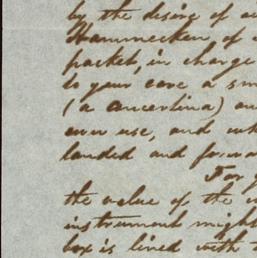 by the desire of
Hammecken of
packet, in charge
to your care a
(a concertina)
ever use, and
landed and
For
the value of the
instrument might
box is lined with